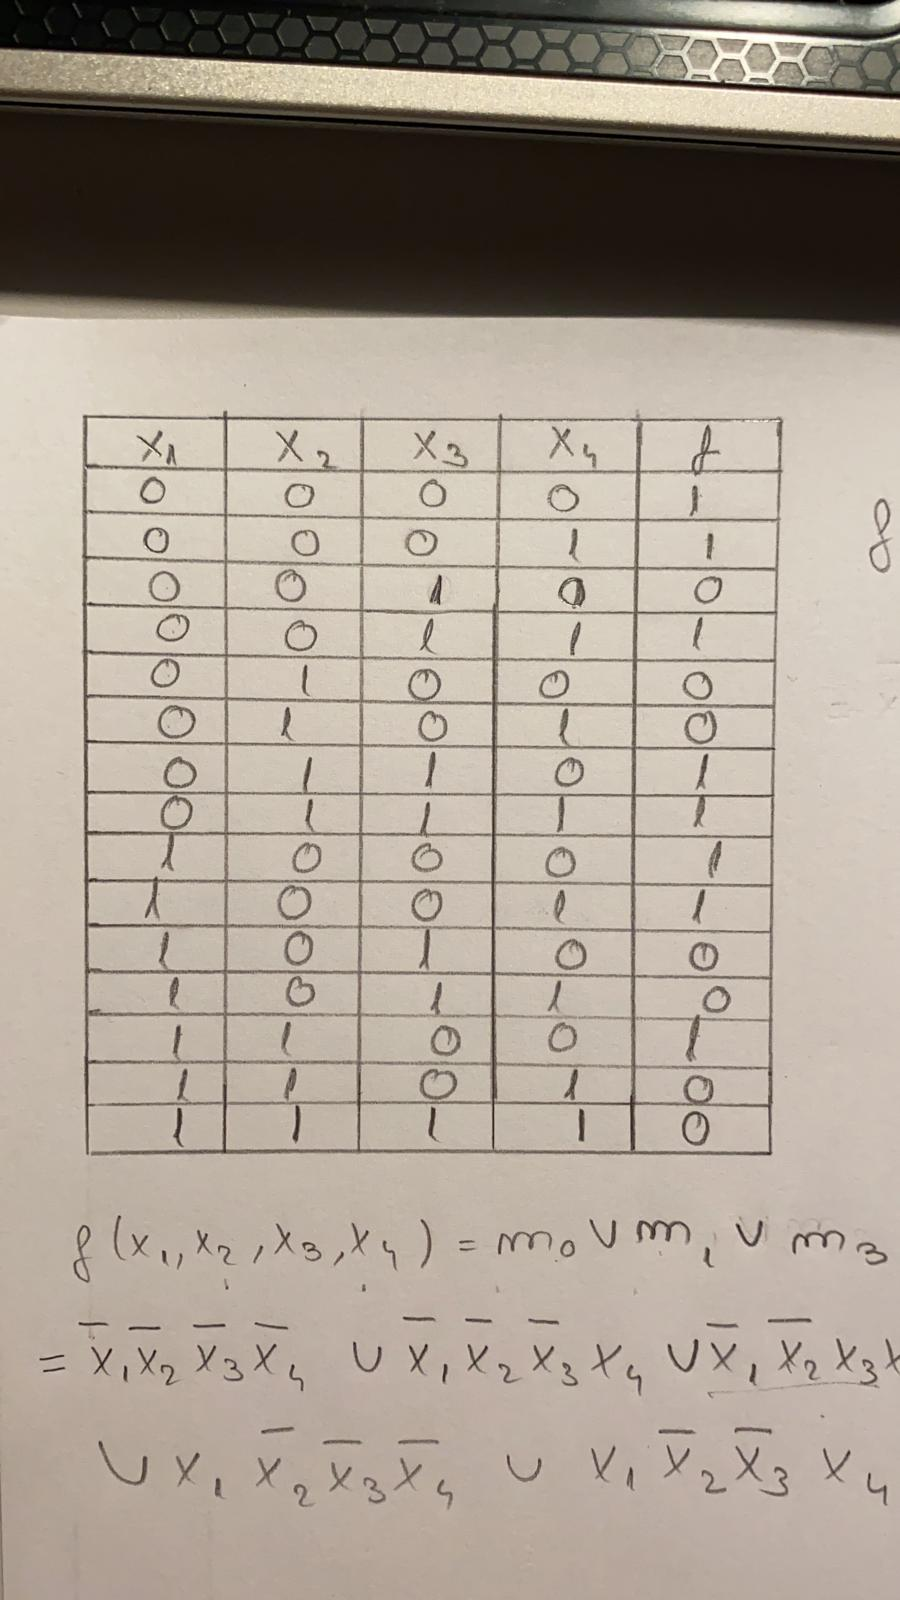 x₁ x₂ x₃ x₄ f
0 0 0 0 1
0 0 0 1 1
0 0 1 0 0
0 0 1 1 1
0 1 0 0 0
0 1 0 1 0
0 1 1 0 1
0 1 1 1 1
1 0 0 0 1
1 0 0 1 1
1 0 1 0 0
1 0 1 1 0
1 1 0 0 1
1 1 0 1 0
1 1 1 1 0
f(x₁,x₂,x₃,x₄) = m₀ ∨ m₁ ∨ m₃
= x̅₁x̅₂x̅₃x̅₄ ∨ x̅₁x̅₂x̅₃x₄ ∨ x̅₁x̅₂x₃x
∨ x₁x̅₂x̅₃x̅₄ ∨ x₁x̅₂x̅₃x₄